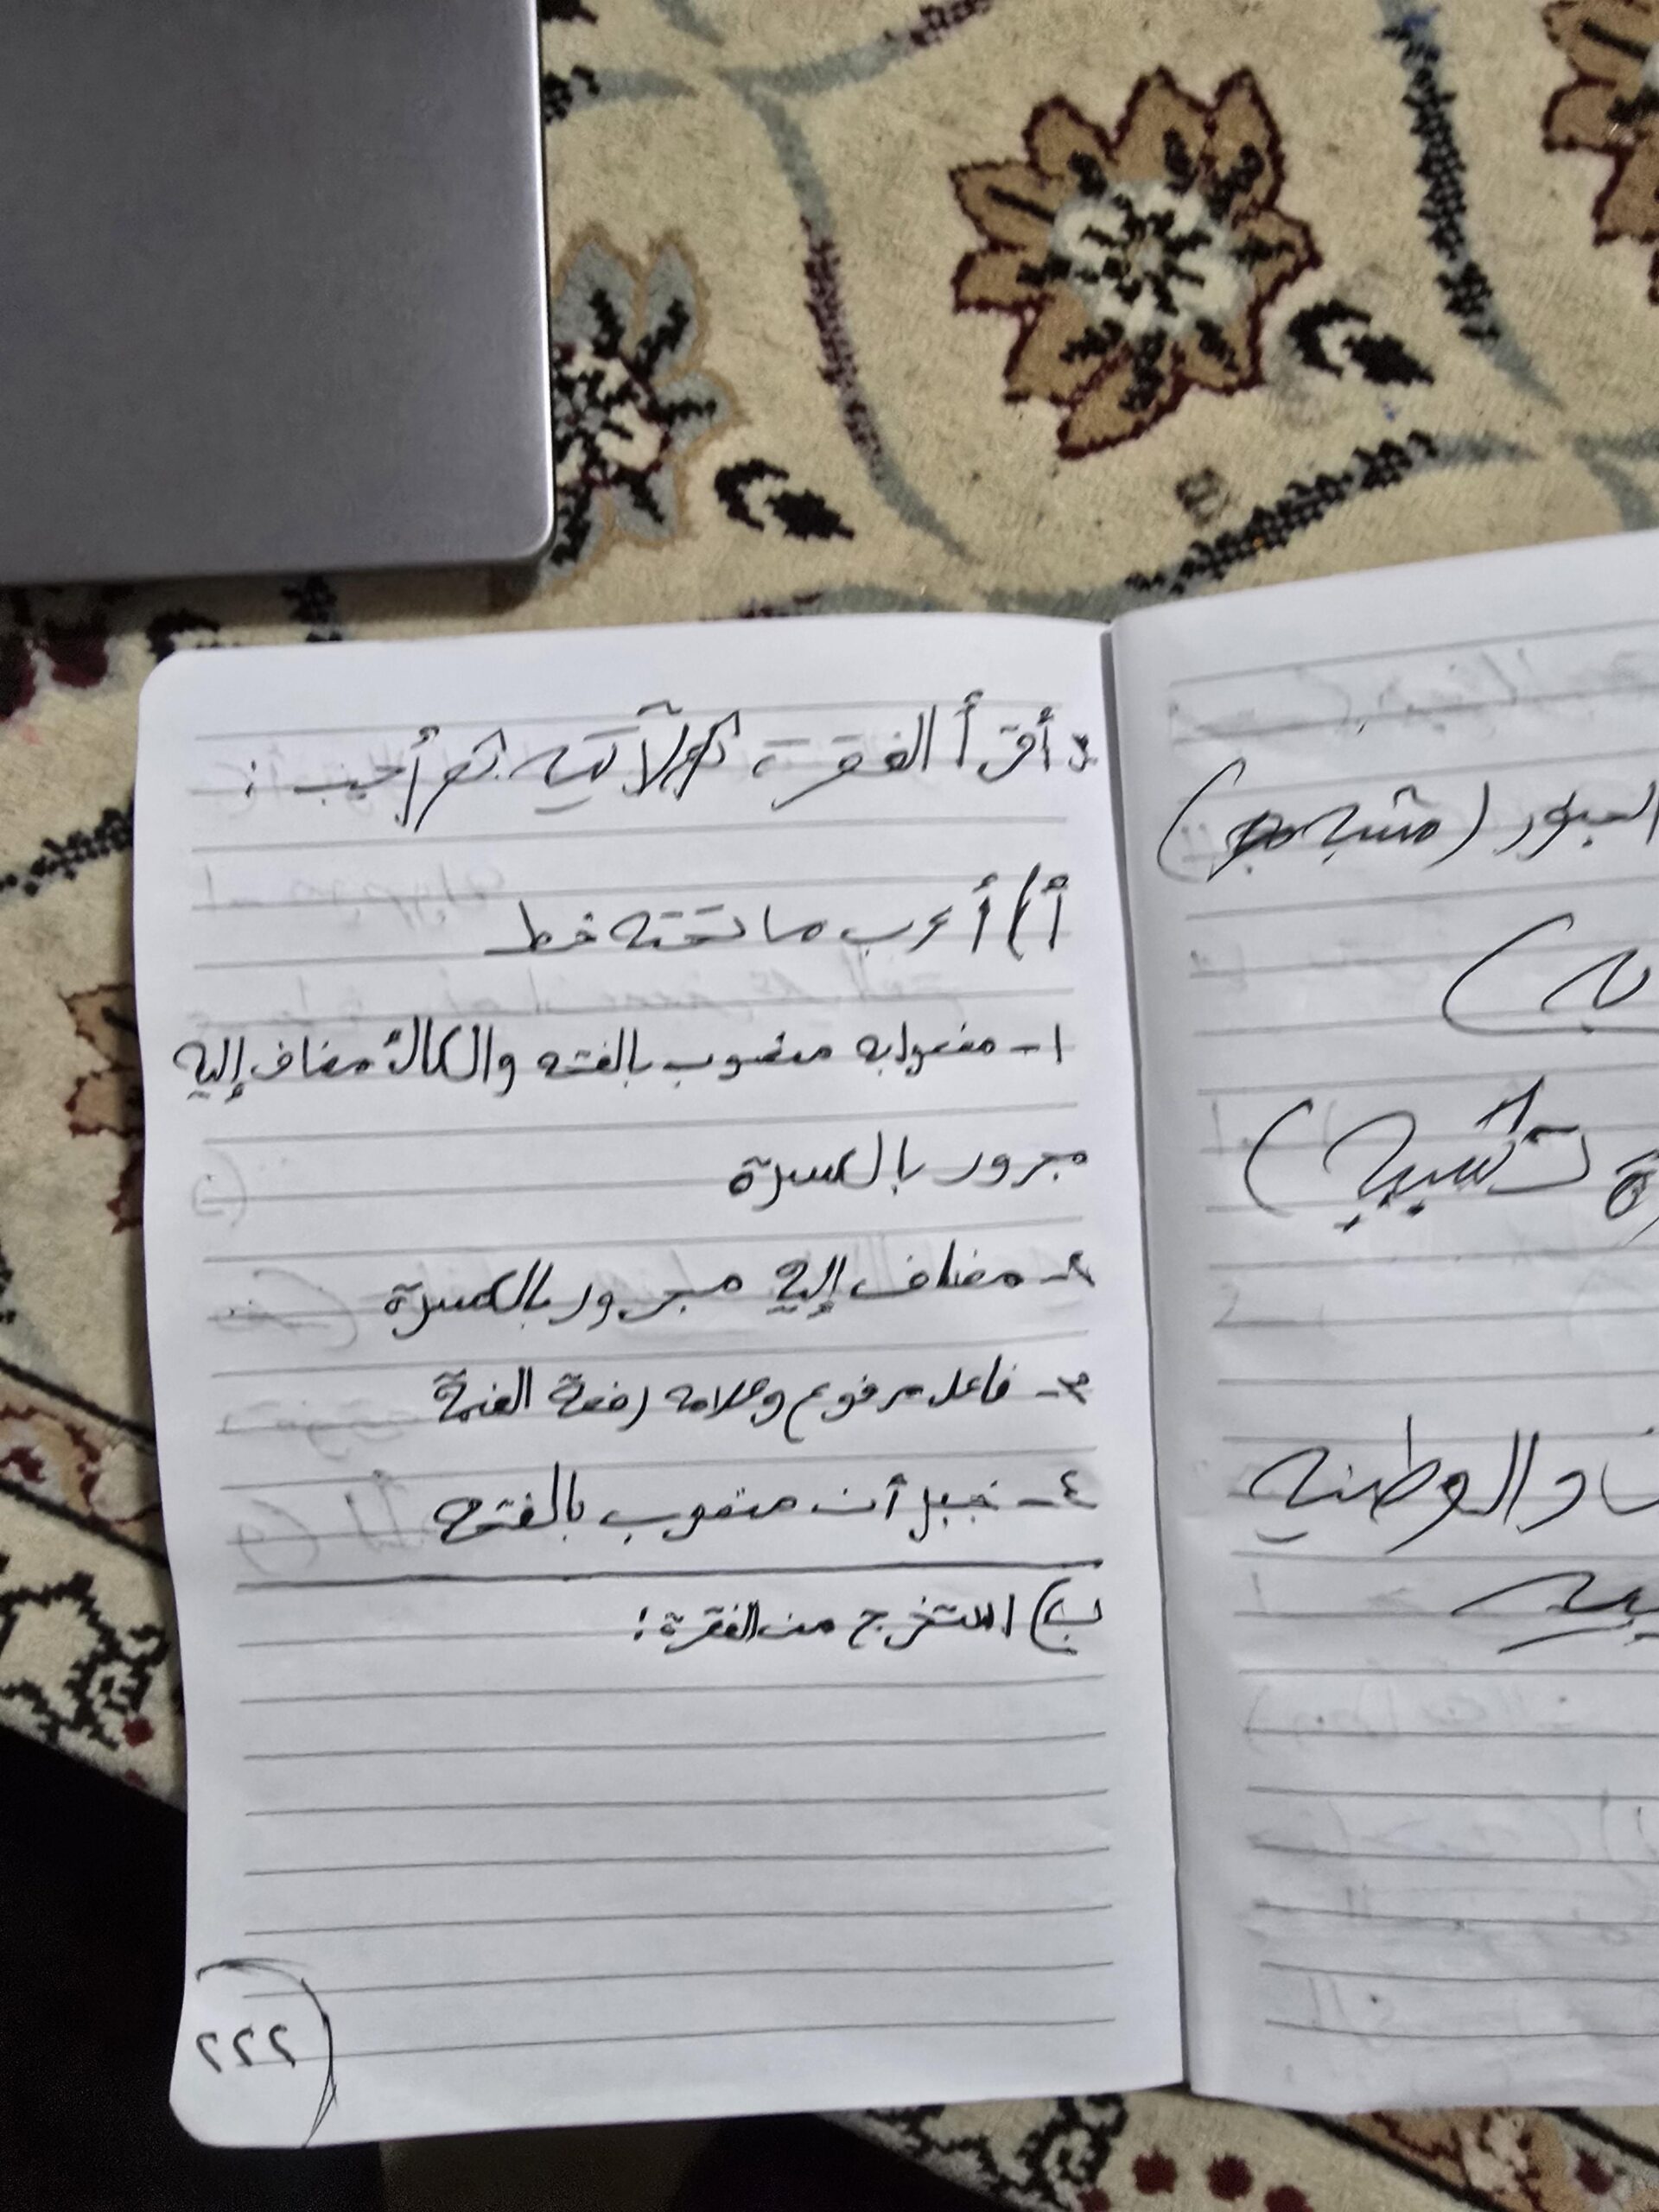 أقرأ الفقرة الآتيه ثم أجيب :
أ) أعرب ما تحته خط
١- مفعول به منصوب بالفتحه والكاف مضاف إليه
مجرور بالكسرة
٢- مضاف إليه مجرور بالكسرة
٣- فاعل مرفوع وعلامه رفعة الضمة
٤- خبر أن منصوب بالفتحه
ب) استخرج من الفقرة :
٢٢٢
(مشبه
به)
ة تشبيه)
والوطنيه